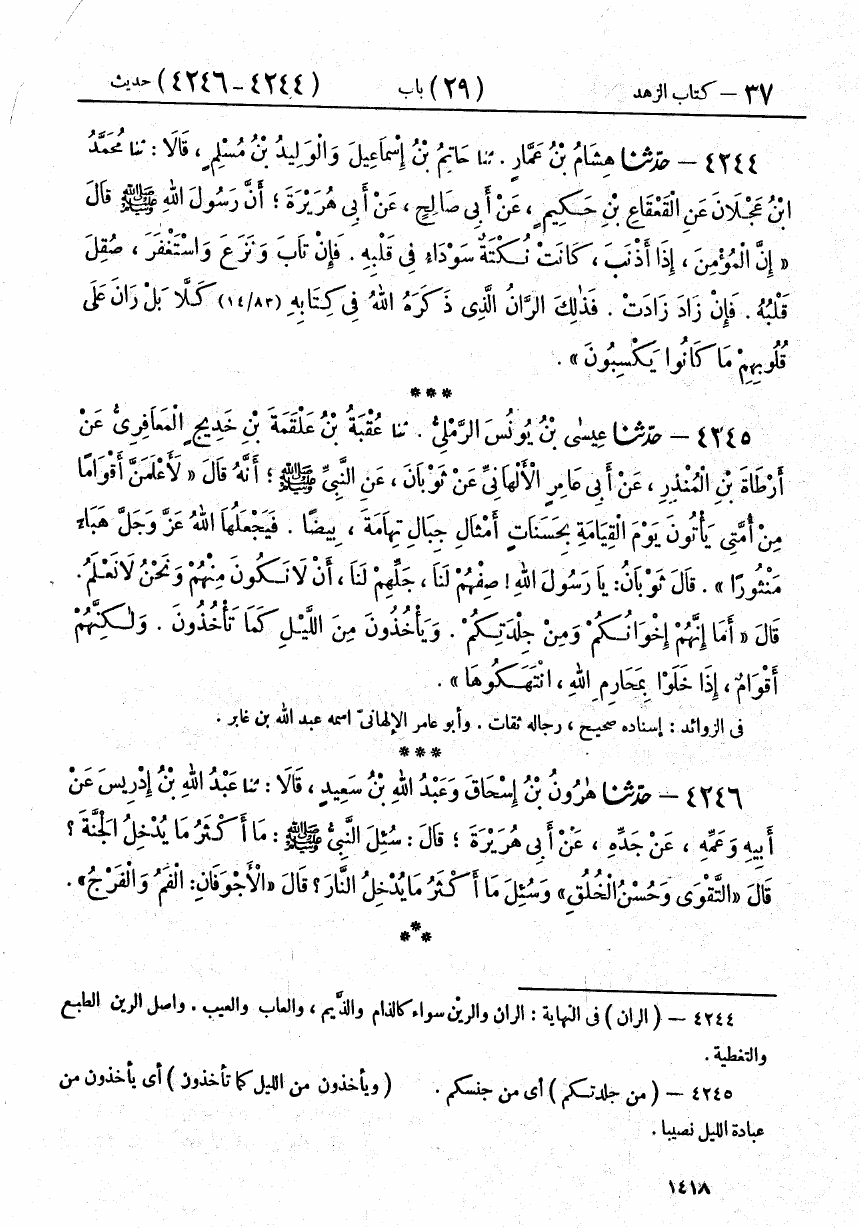 ٣٧ – كتاب الزهد (٢٩) باب (٤٢٤٤ – ٤٢٤٦) حديث
٤٢٤٤ – حَدَّثَنَا هِشَامُ بْنُ عَمَّارٍ . ثنا حَاتِمُ بْنُ إِسْمَاعِيلَ وَالْوَلِيدُ بْنُ مُسْلِمٍ ، قَالَا : ثنا مُحَمَّدُ
ابْنُ عَجْلَانَ عَنِ الْقَعْقَاعِ بْنِ حَكِيمٍ ، عَنْ أَبِي صَالِحٍ ، عَنْ أَبِي هُرَيْرَةَ ؛ أَنَّ رَسُولَ اللهِ ﷺ قَالَ
« إِنَّ الْمُؤْمِنَ ، إِذَا أَذْنَبَ ، كَانَتْ نُكْتَةٌ سَوْدَاءُ فِي قَلْبِهِ . فَإِنْ تَابَ وَنَزَعَ وَاسْتَغْفَرَ ، صُقِلَ
قَلْبُهُ . فَإِنْ زَادَ زَادَتْ . فَذٰلِكَ الرَّانُ الَّذِي ذَكَرَهُ اللهُ فِي كِتَابِهِ (١٤/٨٣) كَلَّا بَلْ رَانَ عَلَى
قُلُوبِهِمْ مَا كَانُوا يَكْسِبُونَ » .
***
٤٢٤٥ – حَدَّثَنَا عِيسَى بْنُ يُونُسَ الرَّمْلِيُّ . ثنا عُقْبَةُ بْنُ عَلْقَمَةَ بْنِ خَدِيجٍ الْمَعَافِرِيُّ عَنْ
أَرْطَاةَ بْنِ الْمُنْذِرِ ، عَنْ أَبِي عَامِرٍ الْأَلْهَانِيِّ عَنْ ثَوْبَانَ ، عَنِ النَّبِيِّ ﷺ ؛ أَنَّهُ قَالَ « لَأَعْلَمَنَّ أَقْوَامًا
مِنْ أُمَّتِي يَأْتُونَ يَوْمَ الْقِيَامَةِ بِحَسَنَاتٍ أَمْثَالِ جِبَالِ تِهَامَةَ ، بِيضًا . فَيَجْعَلُهَا اللهُ عَزَّ وَجَلَّ هَبَاءً
مَنْثُورًا » . قَالَ ثَوْبَانُ: يَا رَسُولَ اللهِ ! صِفْهُمْ لَنَا ، جَلِّهِمْ لَنَا ، أَنْ لَا نَكُونَ مِنْهُمْ وَنَحْنُ لَا نَعْلَمُ.
قَالَ « أَمَا إِنَّهُمْ إِخْوَانُكُمْ وَمِنْ جِلْدَتِكُمْ . وَيَأْخُذُونَ مِنَ اللَّيْلِ كَمَا تَأْخُذُونَ . وَلٰكِنَّهُمْ
أَقْوَامٌ ، إِذَا خَلَوْا بِمَحَارِمِ اللهِ ، انْتَهَكُوهَا » .
فى الزوائد : إسناده صحيح ، رجاله ثقات . وأبو عامر الإلهانىّ اسمه عبد الله بن غابر .
***
٤٢٤٦ – حَدَّثَنَا هٰرُونُ بْنُ إِسْحَاقَ وَعَبْدُ اللهِ بْنُ سَعِيدٍ ، قَالَا : ثنا عَبْدُ اللهِ بْنُ إِدْرِيسَ عَنْ
أَبِيهِ وَعَمِّهِ ، عَنْ جَدِّهِ ، عَنْ أَبِي هُرَيْرَةَ ؛ قَالَ : سُئِلَ النَّبِيُّ ﷺ : مَا أَكْثَرُ مَا يُدْخِلُ الْجَنَّةَ ؟
قَالَ «التَّقْوَى وَحُسْنُ الْخُلُقِ» وَسُئِلَ مَا أَكْثَرُ مَا يُدْخِلُ النَّارَ ؟ قَالَ «الْأَجْوَفَانِ: الْفَمُ وَالْفَرْجُ» .
***
٤٢٤٤ – ( الران ) فى النهاية : الران والرين سواء كالذام والذيم ، والعاب والعيب . واصل الرين الطبع
والتغطية .
٤٢٤٥ – ( من جلدتكم ) أى من جنسكم . ( ويأخذون من الليل كما تأخذون ) أى يأخذون من
عبادة الليل نصيبا .
١٤١٨